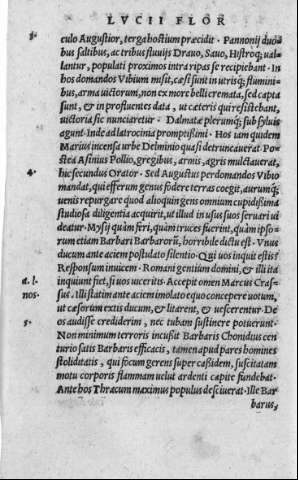 LVCII FLOR
3.
culo Augustior, terga hostium præcidit · Pannonij duobus
bus saltibus, ac tribus fluuijs Drauo, Sauo, Histroq; uallantur
lantur, populati proximos intra ripas se recipiebant · In
hos domandos Vibium misit, cæsi sunt in utrisq; fluminibus
bus, arma uictorum, non ex more belli cremata, sed capta
sunt, & in profluentes data, ut cæteris qui resistebant,
uictoria sic nunciaretur · Dalmatæ plerumq; sub syluis
agunt · Inde ad latrocinia promptissimi · Hos iam quidem
Marius incensa urbe Delminio quasi detruncauerat · Postea
stea Asinius Pollio, gregibus, armis, agris mulctauerat,
4. hic secundus Orator · Sed Augustus perdomandos Vibio
mandat, qui efferum genus fodere terras coegit, aurumq;
uenis repurgare quod alioquin gens omnium cupidissima
studiosa diligentia acquirit, ut illud in usus suos seruari ui
deatur · Mysij quàm feri, quàm truces fuerint, quàm ipso-
rum etiam Barbari Barbarorū, horribile dictu est · Vnus
ducum ante aciem postulato silentio · Qui uos inquit estis?
Responsum inuicem · Romani gentium domini, & illi ita
a. l. inquiunt fiet, si uos uiceritis · Accepit omen Marcus Cras-
nos. sus. Illi statim ante aciem imolato equo concepere uotum,
ut cæsorum extis ducum, & litarent, & uescerentur · De
os audisse crediderim, nec tubam sustinere potuerunt ·
5. Non minimum terroris incußit Barbaris Chonidius cen-
turio satis Barbaris efficacis, tamen apud pares homines
stoliditatis, qui focum gerens super cassidem, suscitatam
motu corporis flammam uelut ardenti capite fundebat ·
Ante hos Thracum maximus populus desciuerat · Ille Bar
barus,